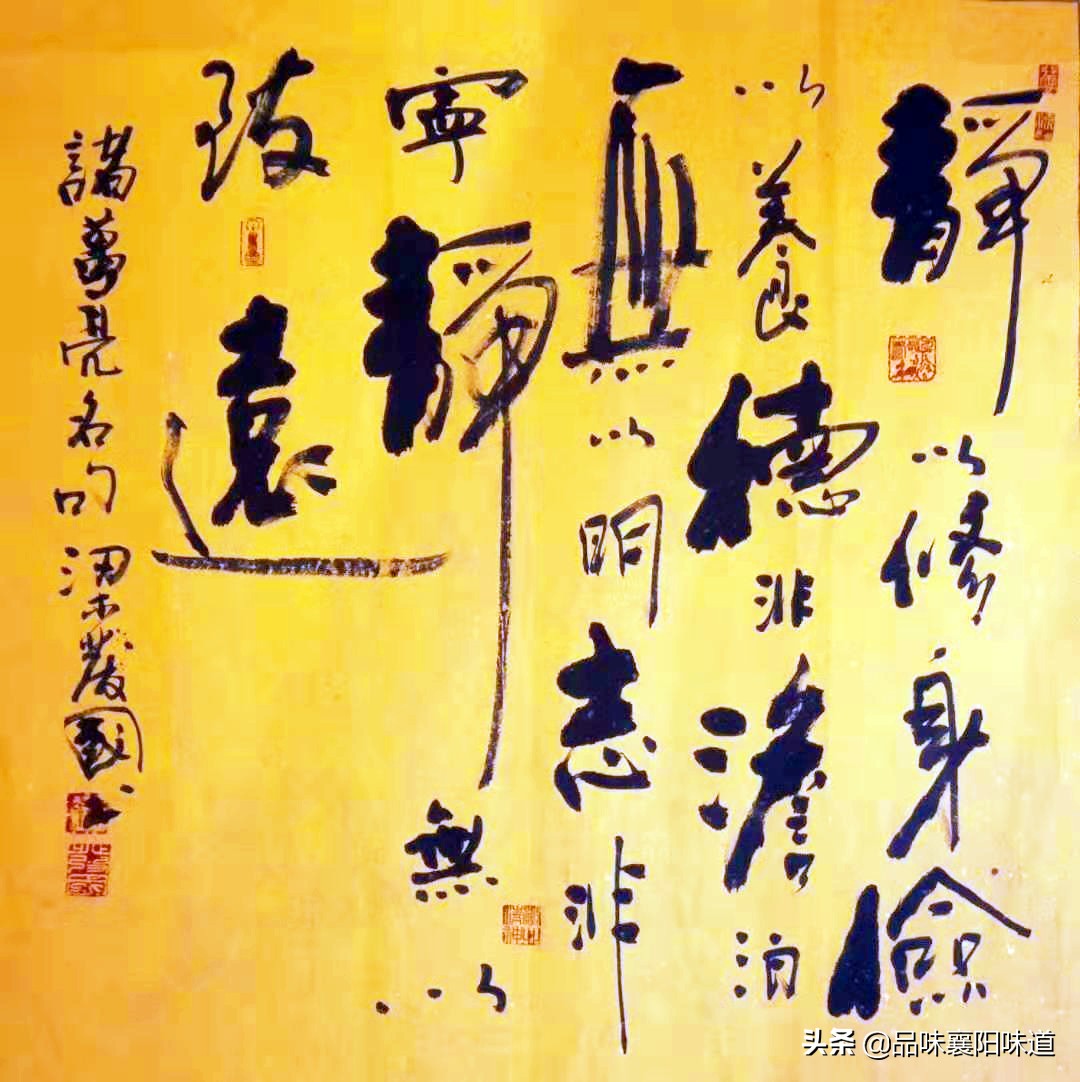 靜以修身儉
以養德非澹泊
無以明志非
寧靜無以
致遠
諸葛亮名句 梁國书
头条 @品味襄阳味道